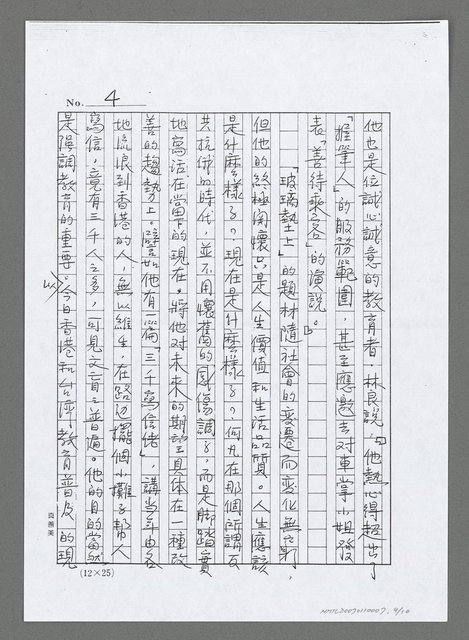 No. 4
他也是位誠心誠意的教育者，林良說：「他熱心得超出了
「握筆人」的服務範圍，甚至應邀去对車掌小姐發
表『善待乘客』的演說。」
「玻璃墊上」的題材隨社會的变遷而变化無窮，
但他的終極関懷只是人生價值和生活品質。人生應該
是什麼樣子？現在是什麼樣子？何凡在那個所謂反
共抗俄的時代，並不用懷舊的感傷調子，而是脚踏實
地寫活在當下的現在。將他对未來的期望具体在一種改
善的趨勢上。譬如他有一篇「三千寫信佬」，講當年由各
地流浪到香港的人，無以維生，在路边擺個小攤子帮人
寫信，竟有三千人之多，可見文盲之普遍。他的目的當然
是强調教育的重要。以今日香港和台灣教育普及的現
(12×25)
NMTL20070110007. 4/10